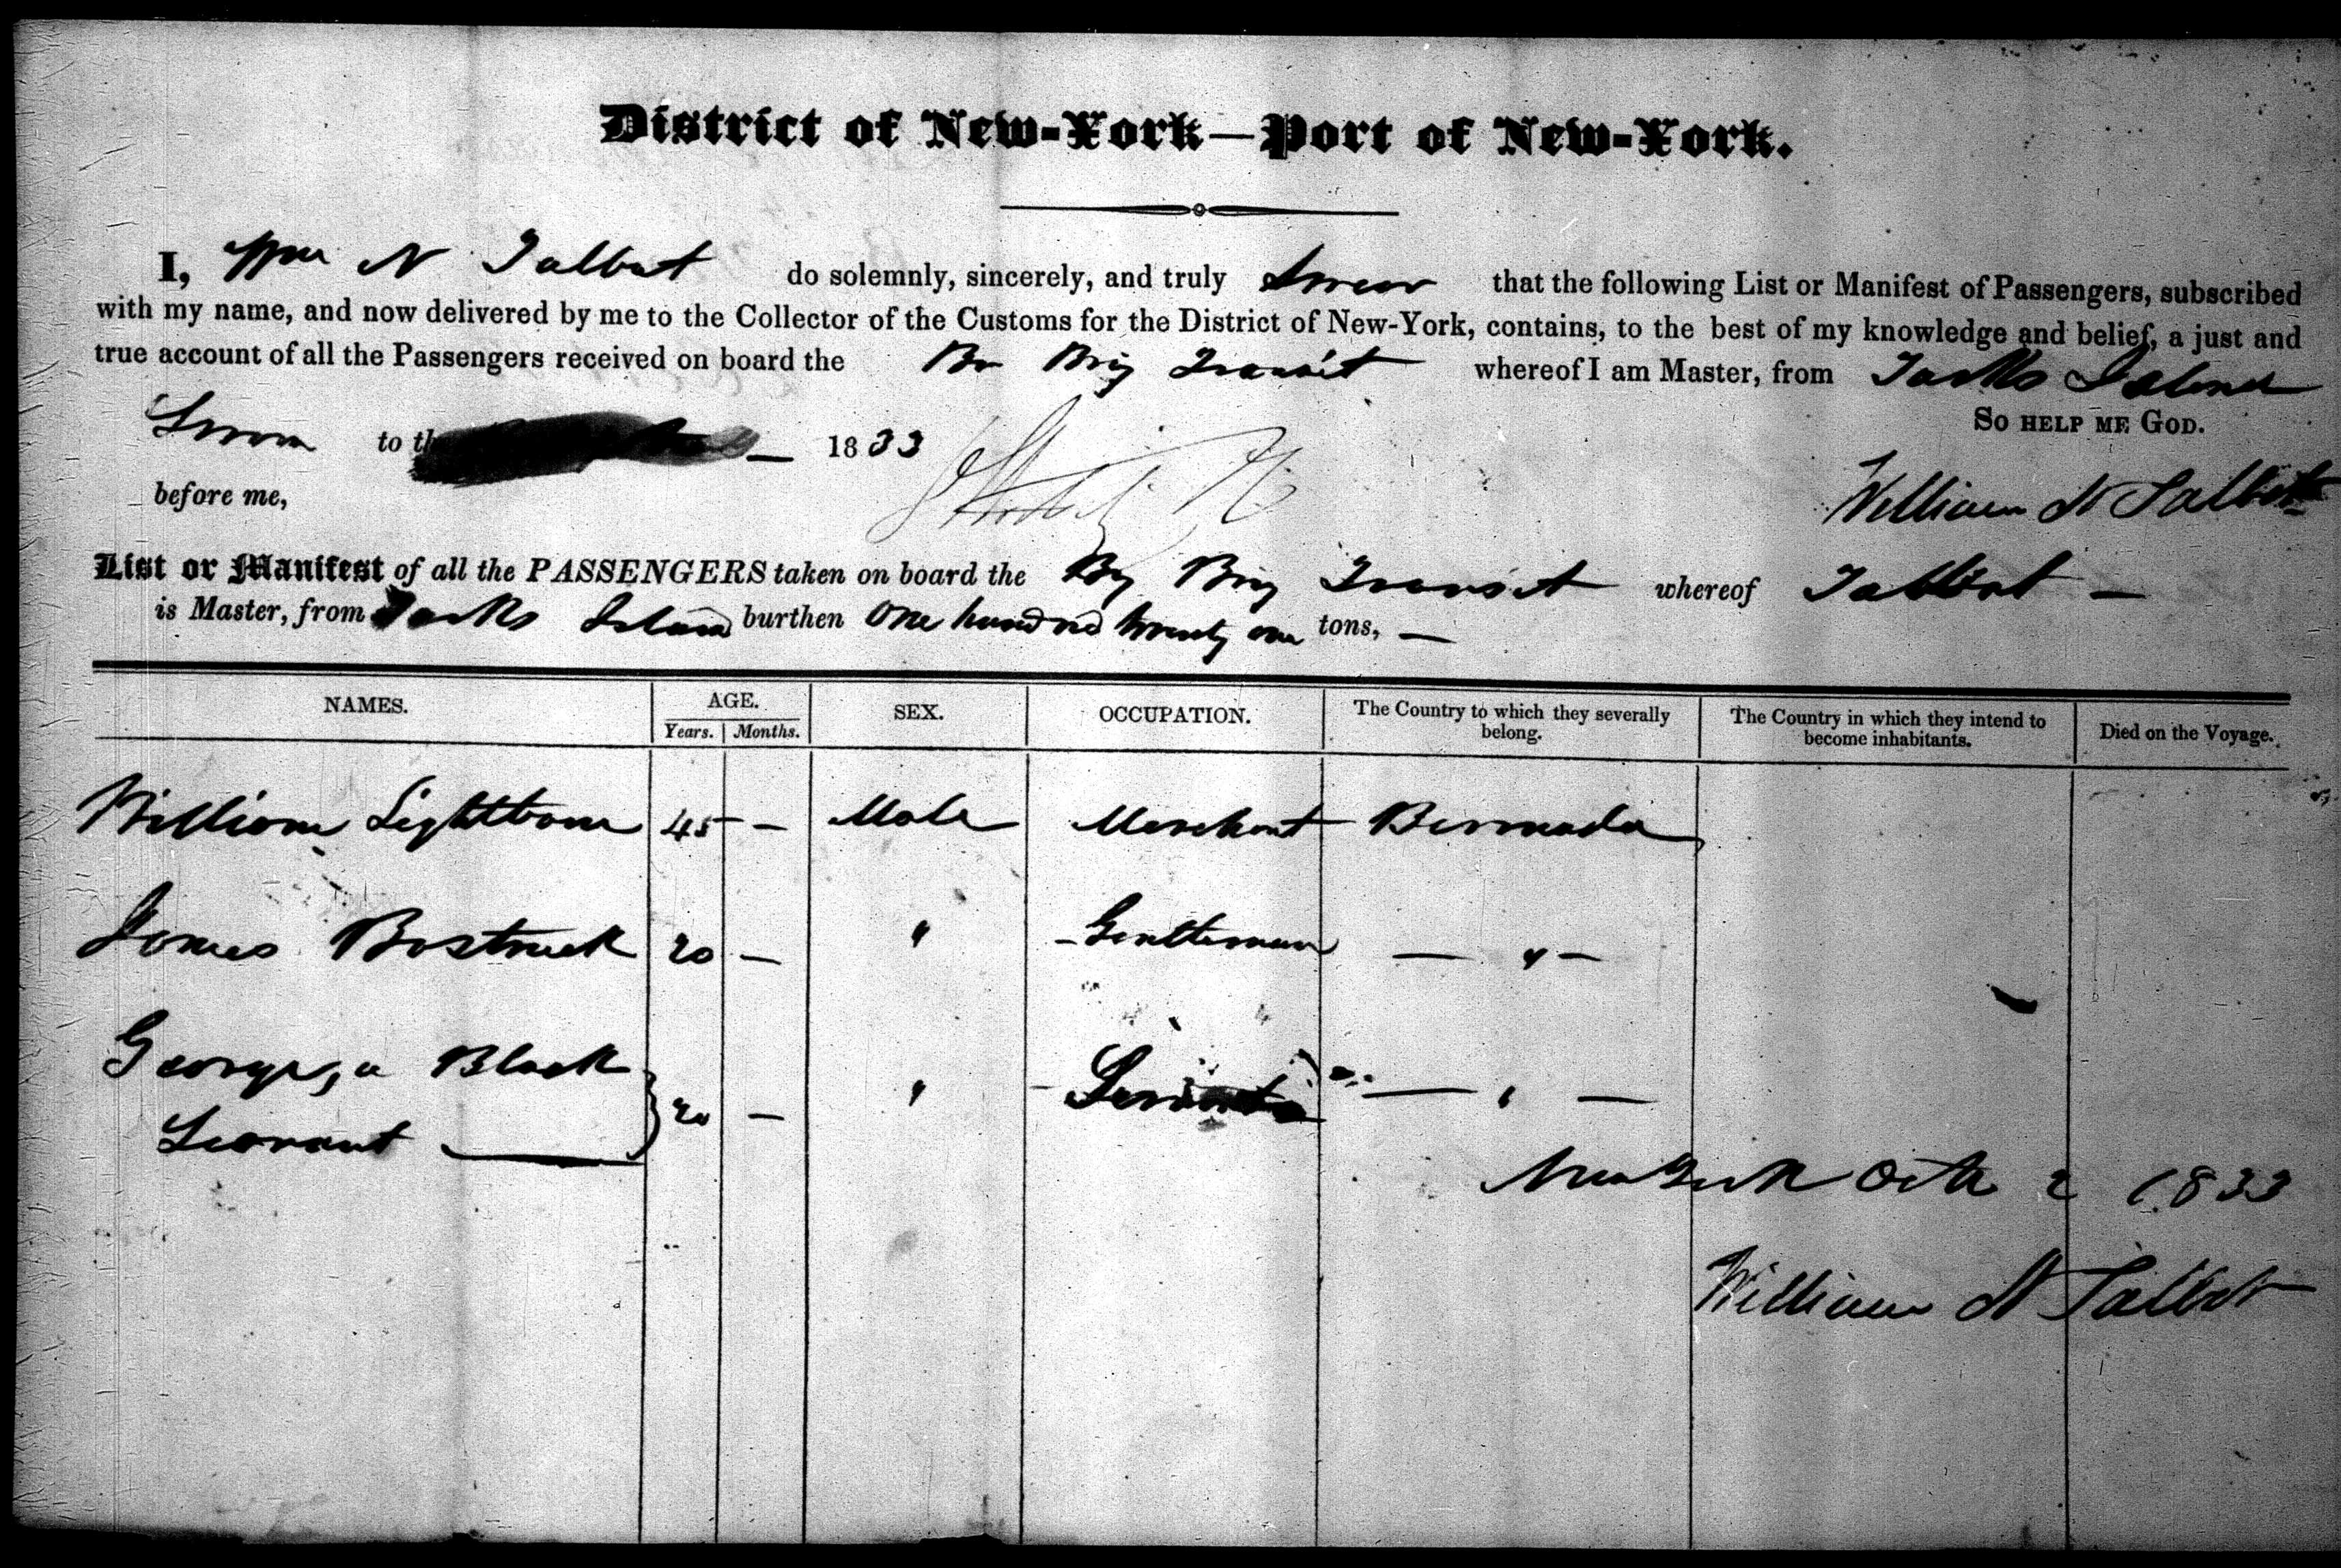 District of New-York—Port of New-York.
I, Wm N Talbot do solemnly, sincerely, and truly Swear that the following List or Manifest of Passengers, subscribed
with my name, and now delivered by me to the Collector of the Customs for the District of New-York, contains, to the best of my knowledge and belief, a just and
true account of all the Passengers received on board the Br Brig Transit whereof I am Master, from Turks Island
So help me God.
Sworn to th 1833
William N Talbot
before me,
List or Manifest of all the PASSENGERS taken on board the Brig Transit whereof Talbot —
is Master, from Turks Island burthen One hundred twenty one tons, —
NAMES. AGE. SEX. OCCUPATION. The Country to which they severally belong. The Country in which they intend to become inhabitants. Died on the Voyage.
Years. Months.
William Lightbourn 45 — Male Merchant Bermuda
James 20 — " Gentleman — " —
George, a Black
Servant 20 — " Servant — " —
New York Octr 2 1833
William N Talbot